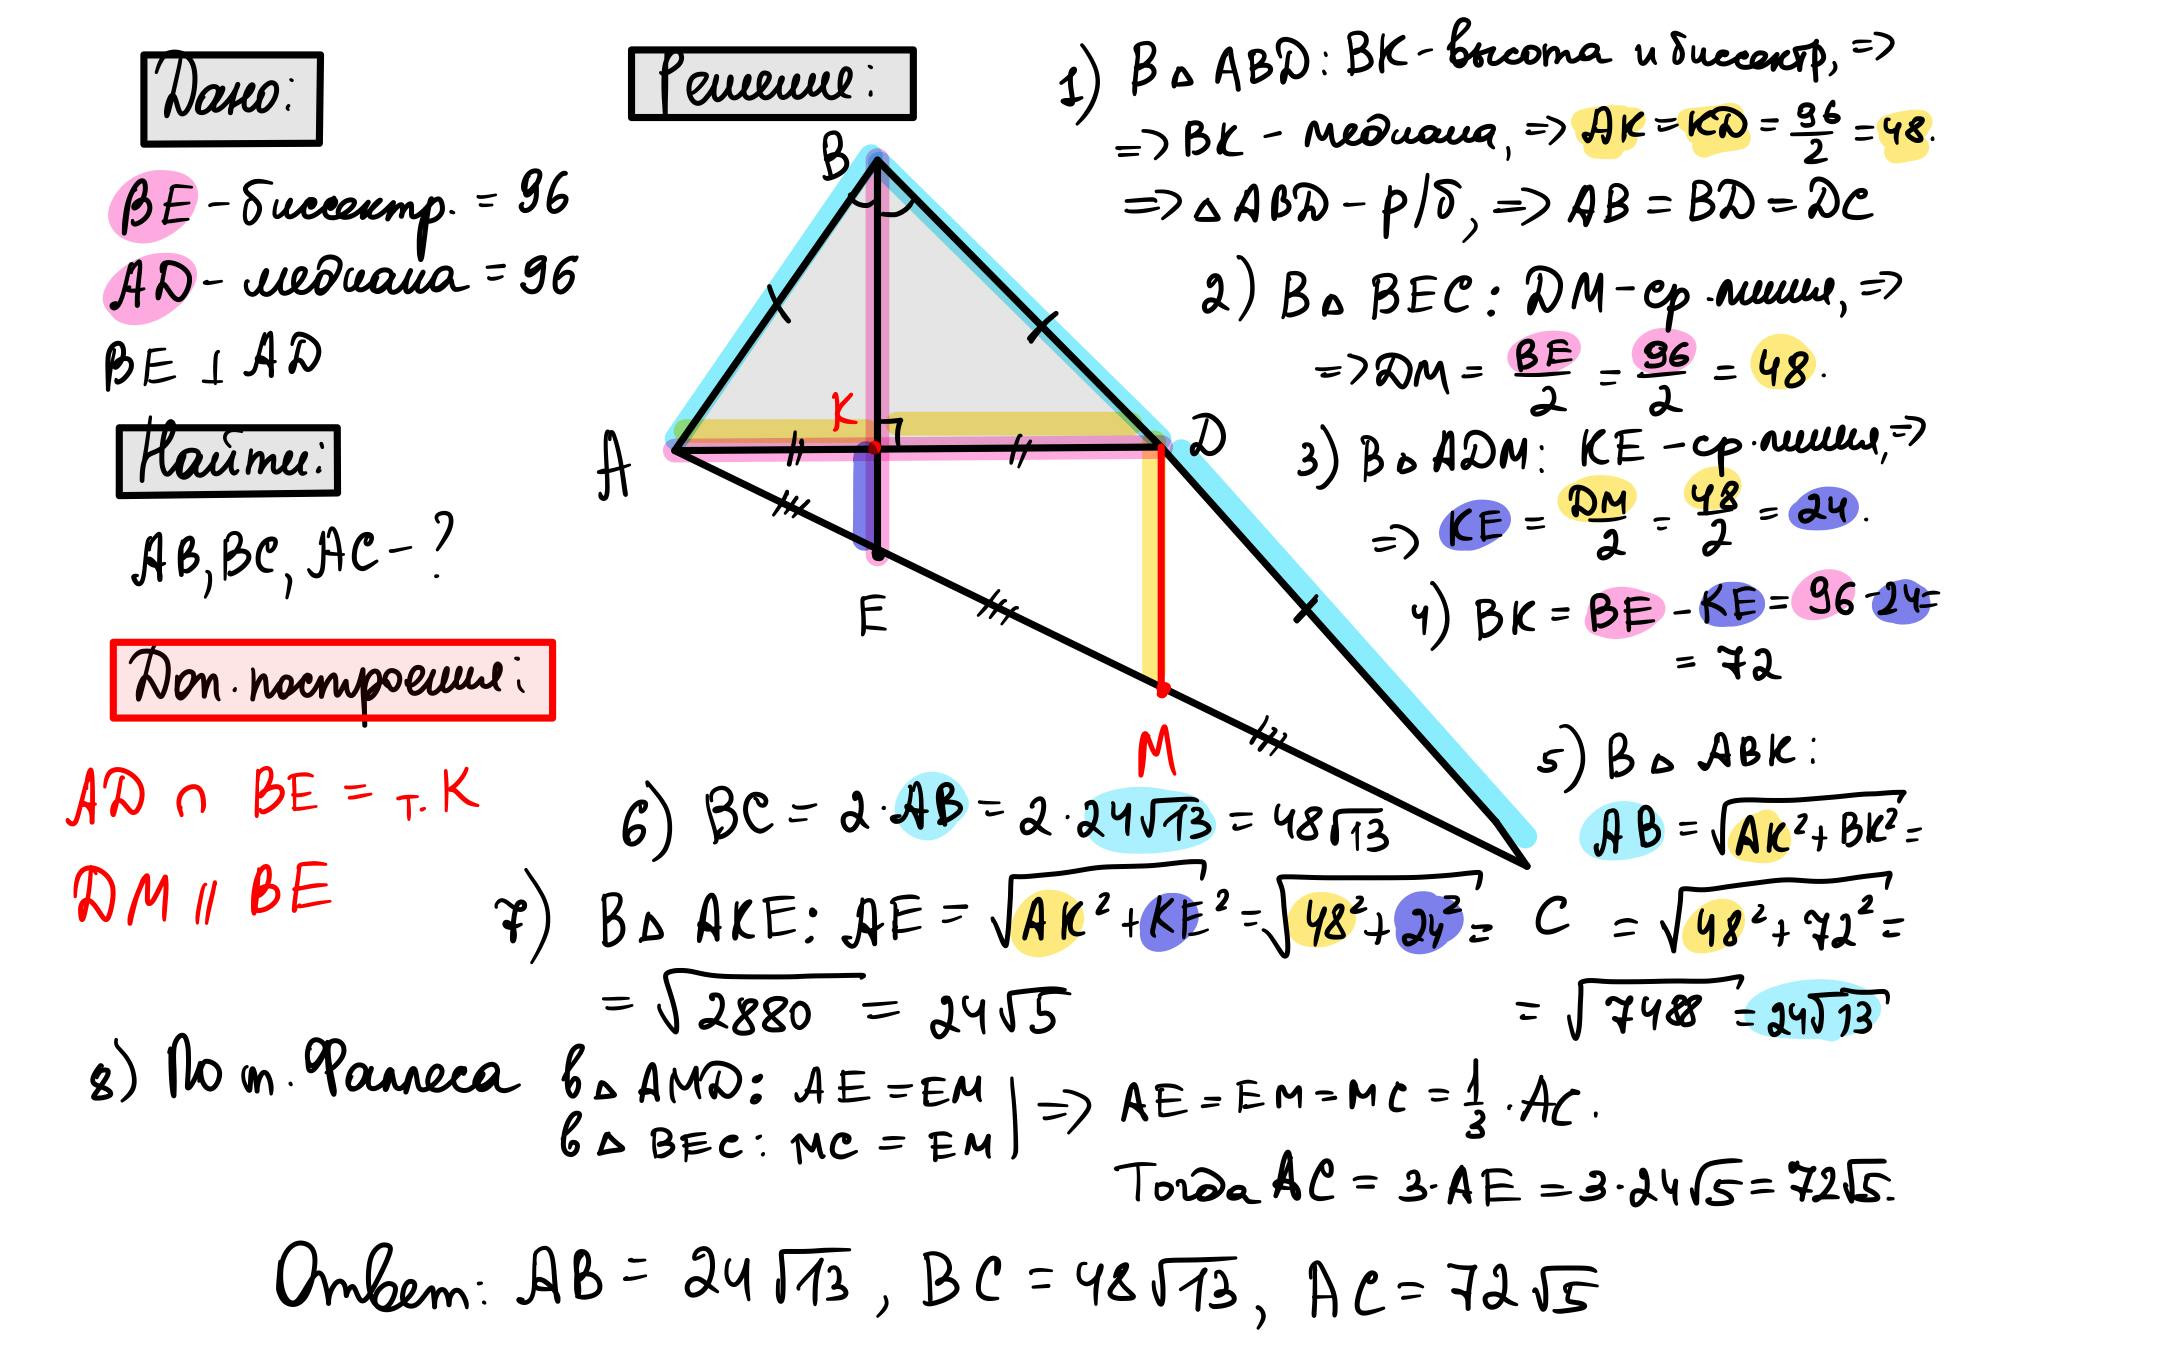 Дано:
BE - биссектр. = 96
AD - медиана = 96
BE ⊥ AD
Найти:
AB, BC, AC - ?
Доп. построения:
AD ∩ BE = т. K
DM || BE
Решение:
B
K
A
D
E
M
C
1) В △ ABD: BK - высота и биссектр, =>
=> BK - медиана, => AK = KD = 96/2 = 48.
=> △ ABD - р/б, => AB = BD = DC
2) В △ BEC: DM - ср. линия, =>
=> DM = BE/2 = 96/2 = 48.
3) В △ ADM: KE - ср. линия, =>
=> KE = DM/2 = 48/2 = 24.
4) BK = BE - KE = 96 - 24 =
= 72
5) В △ ABK:
AB = √(AK² + BK²) =
= √(48² + 72²) =
= √7488 = 24√13
6) BC = 2 · AB = 2 · 24√13 = 48√13
7) В △ AKE: AE = √(AK² + KE²) = √(48² + 24²) =
= √2880 = 24√5
8) По т. Фаллеса в △ AMD: AE = EM
в △ BEC: MC = EM
=> AE = EM = MC = 1/3 · AC.
Тогда AC = 3 · AE = 3 · 24√5 = 72√5.
Ответ: AB = 24√13, BC = 48√13, AC = 72√5